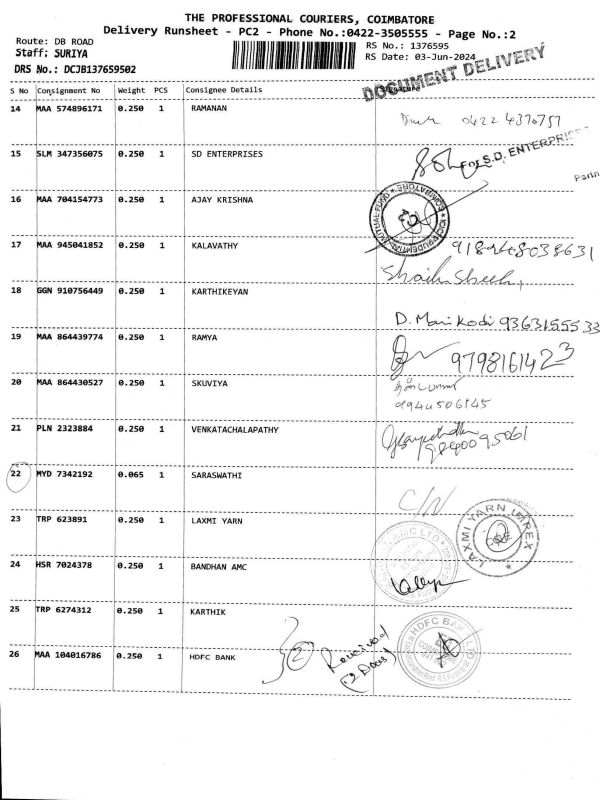 THE PROFESSIONAL COURIERS, COIMBATORE
Delivery Runsheet - PC2 - Phone No.:0422-3505555 - Page No.:2
Route: DB ROAD
Staff: SURIYA
DRS No.: DCJB137659502
RS No.: 1376595
RS Date: 03-Jun-2024
DOCUMENT DELIVERY
S No Consignment No Weight PCS Consignee Details
14 MAA 574896171 0.250 1 RAMANAN
0422 4376757
15 SLM 347356075 0.250 1 SD ENTERPRISES
For S.D. ENTERPRISE
Partn
16 MAA 704154773 0.250 1 AJAY KRISHNA
MUTUAL FUND * COIMBATORE * ICICI PRUDENTIAL
17 MAA 945041852 0.250 1 KALAVATHY
918968038631
18 GGN 910756449 0.250 1 KARTHIKEYAN
D. Mari Kodi 9363155533
19 MAA 864439774 0.250 1 RAMYA
9798161423
20 MAA 864430527 0.250 1 SKUVIYA
9944506145
21 PLN 2323884 0.250 1 VENKATACHALAPATHY
9840095061
22 MYD 7342192 0.065 1 SARASWATHI
C/N
23 TRP 623891 0.250 1 LAXMI YARN
LAXMI YARN IMPEX
CBE
24 HSR 7024378 0.250 1 BANDHAN AMC
25 TRP 6274312 0.250 1 KARTHIK
26 MAA 104016786 0.250 1 HDFC BANK
2
Received
(2 Docs)
HDFC BANK LTD